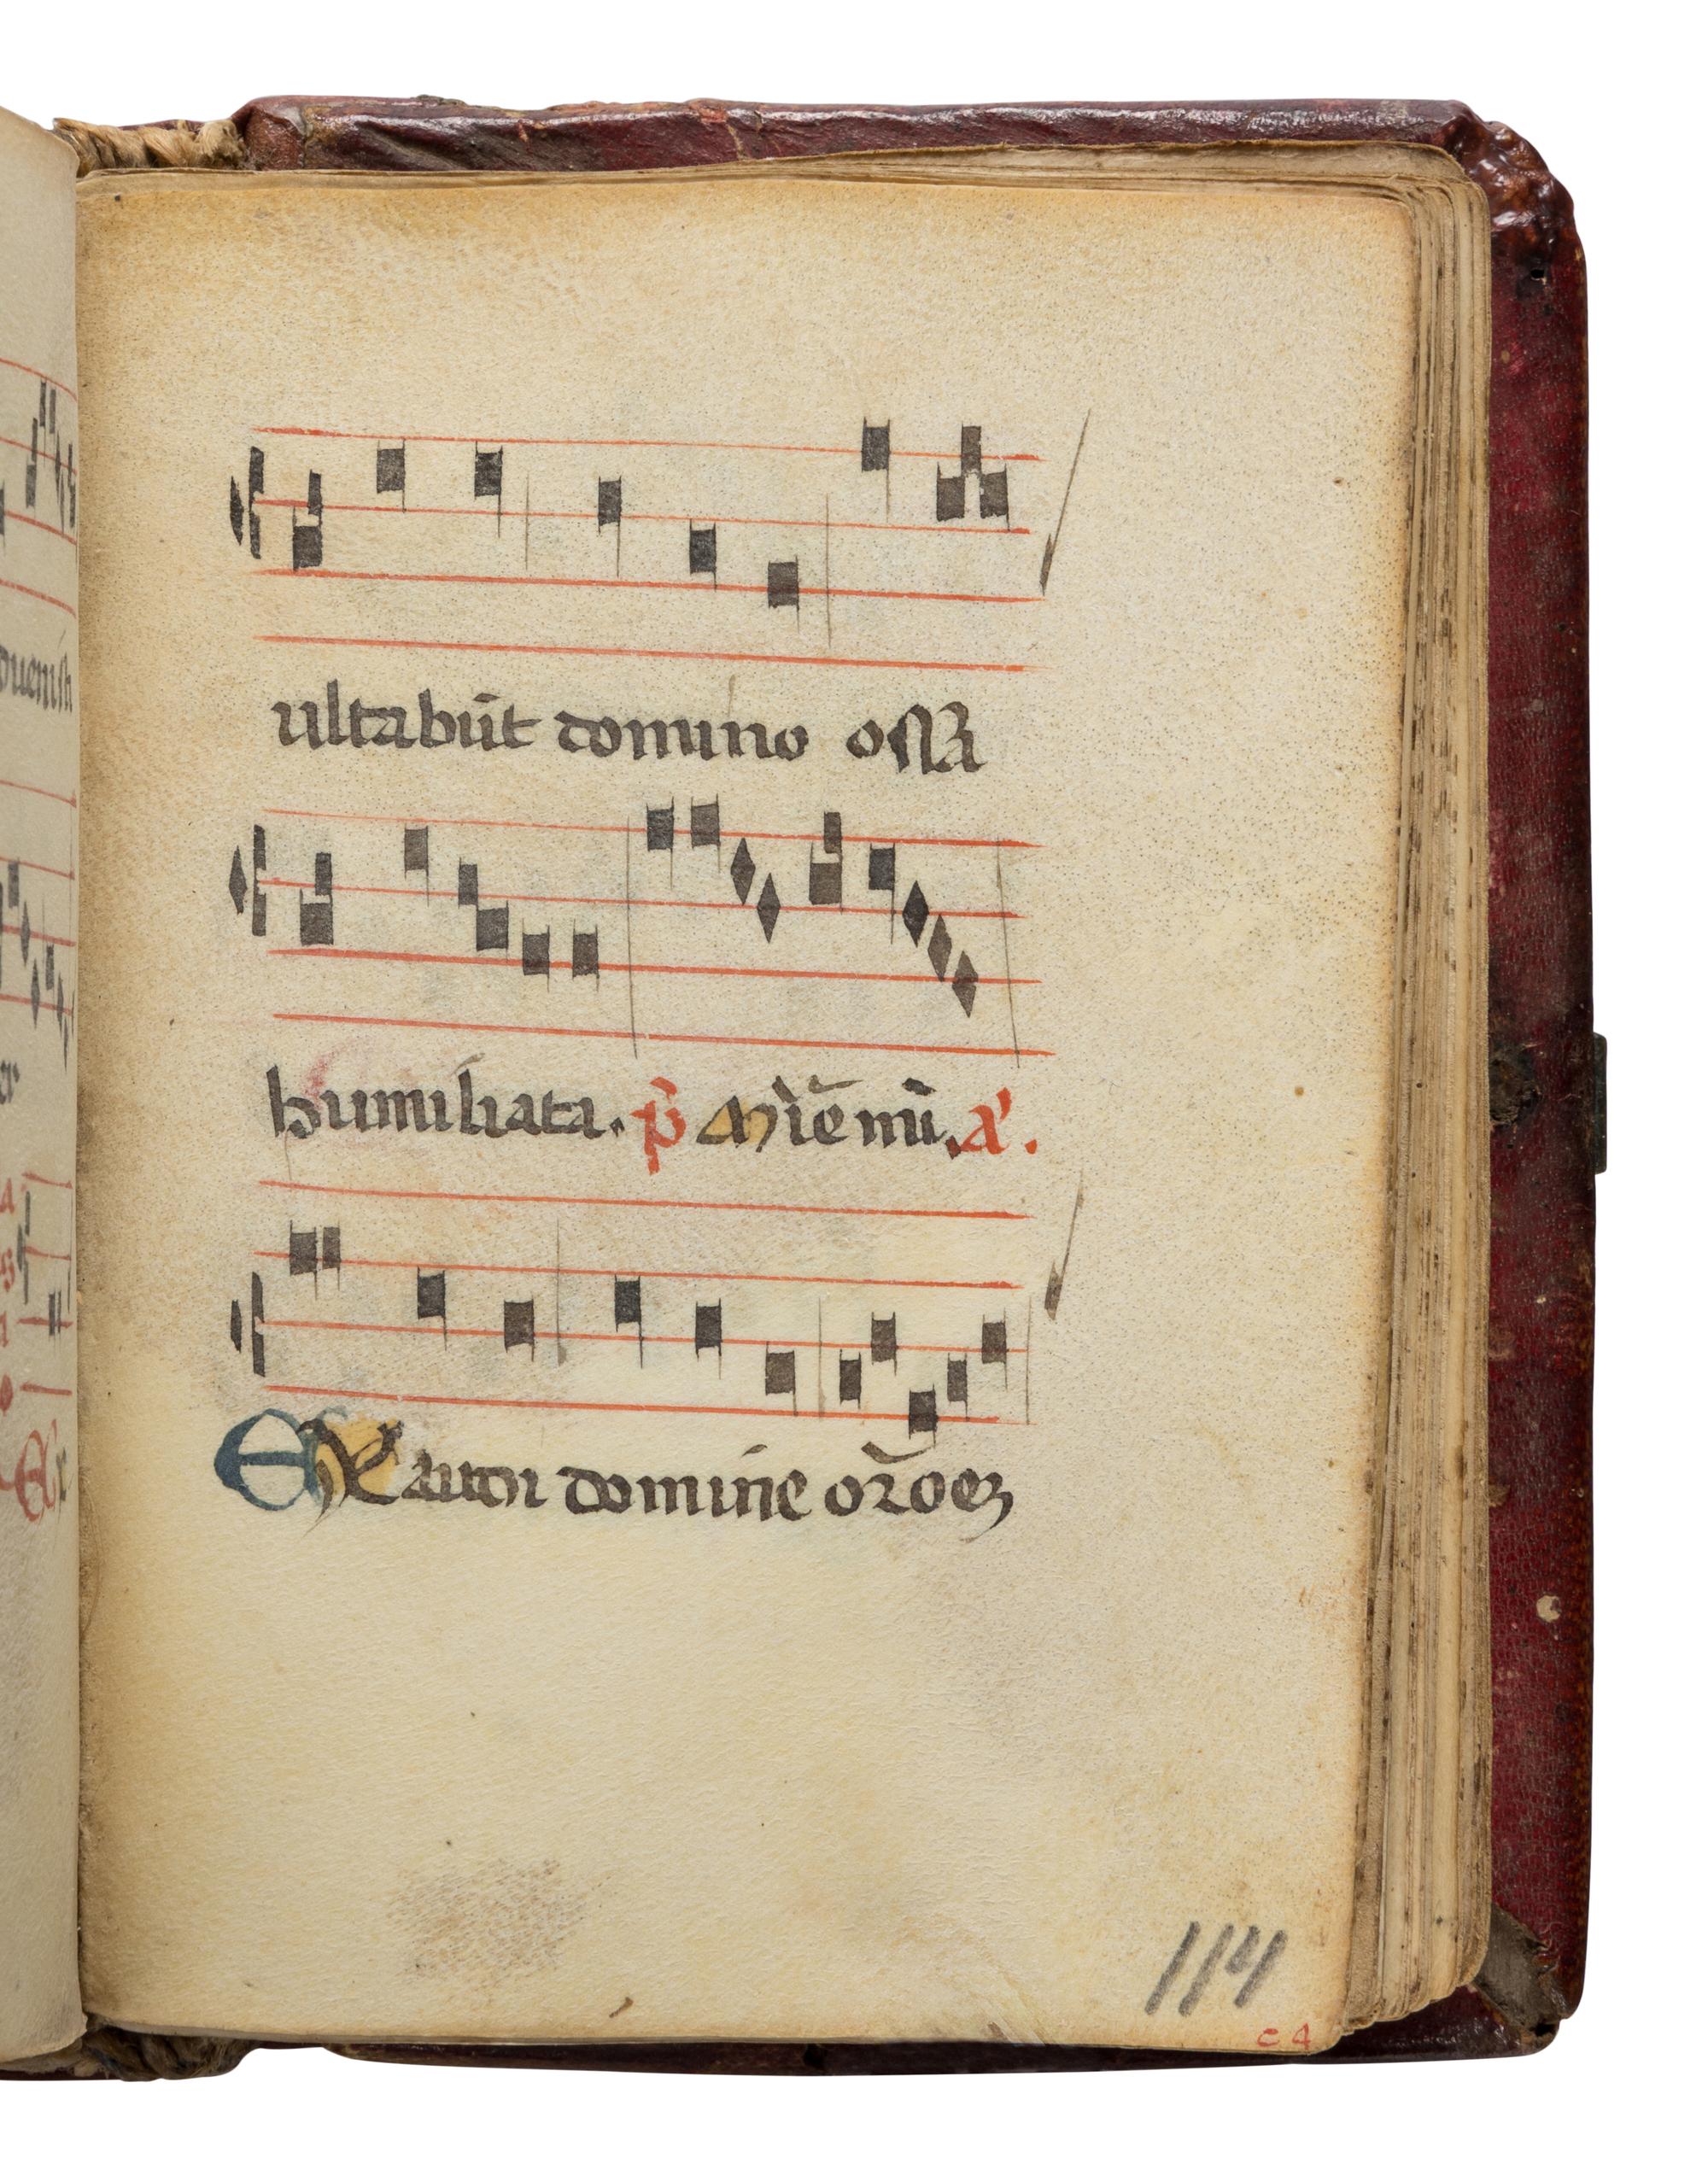 ultabūt domino ossa
humiliata. p̄ Mīẽ mī. a'.
EXaudi domine or̄oeꝫ
114
c 4